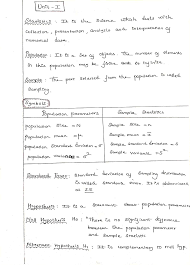 Unit - I
Statistics : It is the Science which deals with
collection, presentation, analysis and interpretation of
numerical data.
Population : It is a set of objects. The number of elements
in this population may be finite or infinite
Sample : The part selected from the population is called
Sampling.
Symbols
Population Parameters Sample Statistics
Population size = N Sample size = n
Population mean = μ Sample mean = x̄
Population standard deviation = σ Sample standard deviation = s
Population variance = σ² Sample variance = s²
Standard Error : Standard deviation of Sampling distribution
is called standard error. It is denoted as
Hypothesis : It is a Statement about population parameters
Null Hypothesis H₀ : "There is no significant difference
between the population parameters
and Sample Statistics
Alternative Hypothesis H₁ : It is complementary to null hyp.